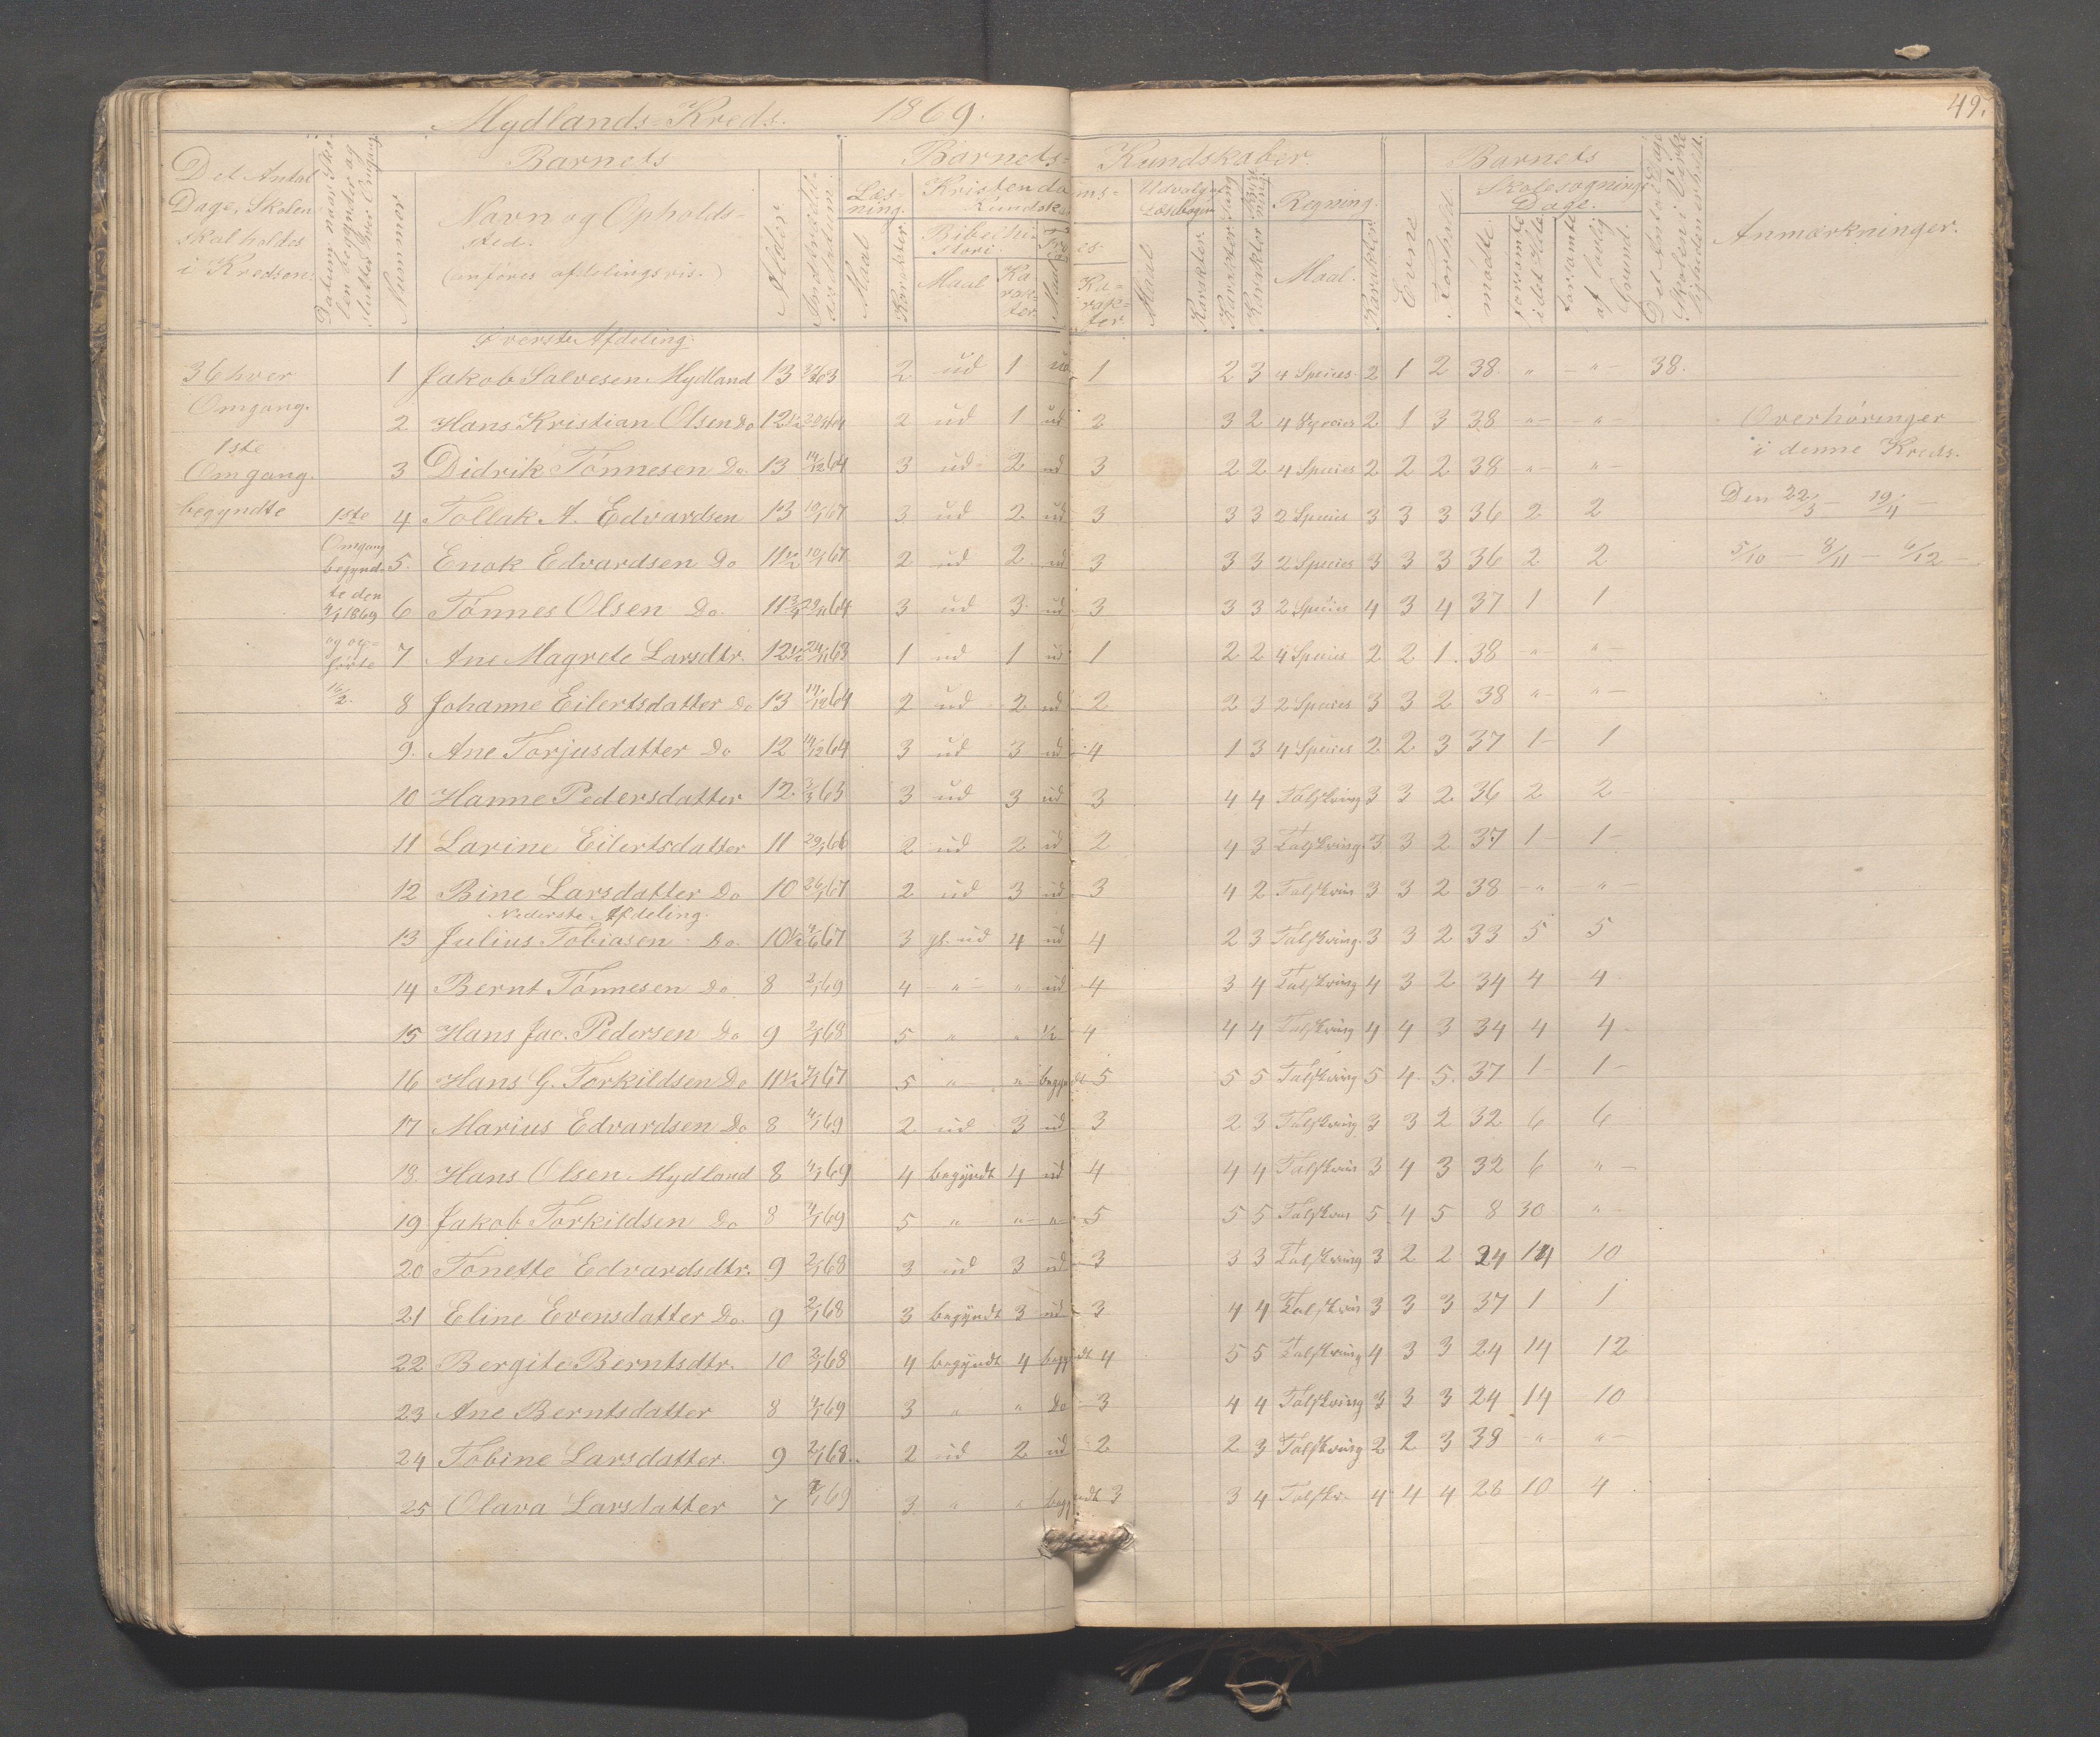 Mydlands Kreds. 1869. 49.
Barnets Barnets Kundskaber. Barnets
Det Antal Dage, Skolen skal holdes i Kredsen.
Nummer
Navn og Opholdssted. (anføres afdelingsvis.)
Alder.
Læsning. Maal Karakter.
Kristendoms- Kundskab
Bibelhistorie Maal Karakter.
Maal Karakter.
Udvalg af Læsebogen Maal Karakter.
Regning. Maal. Karakter.
Evne Forhold.
Skolesøgnings Dage. mødte. forsømte i det Hele. forsømte af lovlig Grund.
Anmærkninger.
Øverste Afdeling.
36 hver 1 Jakob Salvesen Mydland 13 2 ud 1 ud 1 2 3 4 Species 2 1 2 38. " " 38.
Omgang. 2 Hans Kristian Olsen Do 12½ 2 ud 1 ud 2 3 2 4 Species 2 1 3 38 " " Overhøringer
1ste Omgang. 3 Didrik Tønnesen Do 13 14/12 64 3 ud 2 ud 3 2 2 4 Species 2 2 2 38 " " i denne Kreds.
begyndte 1ste 4 Tollak A. Edvardsen 13 67 3 ud 2 ud 3 3 3 2 Species 3 3 3 36 2 2 Den 22/3 — 19/4 —
Omgang begynd- 5. Enok Edvardsen Do 11½ 67 2 ud 2 ud 3 3 3 2 Species 3 3 3 36 2 2 5/10 — 8/11 — 6/12 —
te den 4/1 1869 6 Tønnes Olsen Do. 11¾ 64 3 ud 3 ud 3 3 3 2 Species 4 3 4 37 1 1
og op- hørte 7 Ane Magrete Larsdtr. 12½ 63 1 ud 1 ud 1 2 2 4 Species 2 2 1. 38 " "
16/2. 8 Johanne Eilertsdatter Do 13 14/12 64 2 ud 2 ud 2 2 3 2 Species 3 3 2 38 " "
9. Ane Torjusdatter Do 12 14/12 64 3 ud 3 ud 4 1 3 4 Species 2 2 3 37 1 1
10 Hanne Pedersdatter 12 63 3 ud 3 ud 3 4 4 Talskriving 3 3 2 36 2 2
11 Larine Eilertsdatter 11 66 2 ud 2 ud 2 4 3 Talskriving 3 3 2 37 1 1
12 Bine Larsdatter Do 10 67 2 ud 3 ud 3 4 2 Talskriv 3 3 2 38 " "
Nederste Afdeling.
13 Julius Tobiasen Do. 10½ 67 3 gl. ud 4 ud 4 2 3 Talskriving. 3 3 2 33 5 5
14 Bernt Tønnesen Do 8 69 4 " " ud 4 3 4 Talskriving 4 3 2 34 4 4
15 Hans Jac. Pedersen Do 9 68 5 " " ½ 4 4 4 Talskriving 4 4 3 34 4 4
16 Hans G. Torkildsen Do 11½ 67 5 " " begyndt 5 5 5 Talskriving 5 4 5. 37 1 1
17 Marius Edvardsen Do 8 69 2 ud 3 ud 3 2 3 Talskriving 3 3 2 32 6 6
18. Hans Olsen Mydland 8 69 4 begyndt 4 ud 4 4 4 Talskriv 3 4 3 32 6 "
19 Jakob Torkildsen Do 8 69 5 " " " 5 5 5 Talskriv 5 4 5 8 30 "
20 Tonette Edvardsdtr. 9 68 3 ud 3 ud 3 3 3 Talskriving 3 2 2 24 14 10
21 Eline Evensdatter Do. 9 68 3 begyndt 3 ud 3 4 4 Talskriv 3 3 3 37 1 1
22 Bergite Berntsdtr. 10 68 4 begyndt 4 begyndt 4 5 5 Talskriving 4 3 3 24 14 12
23 Ane Berntsdatter 8 69 3 " " Do 3 4 4 Talskriving 3 3 3 24 14 10
24 Tobine Larsdatter. 9 68 2 ud 2 ud 2 2 3 Talskriving 2 2 3 38 " "
25 Olava Larsdatter 7 69 3 " " begyndt 3 3 4 Talskr. 4 4 4 28 10 4